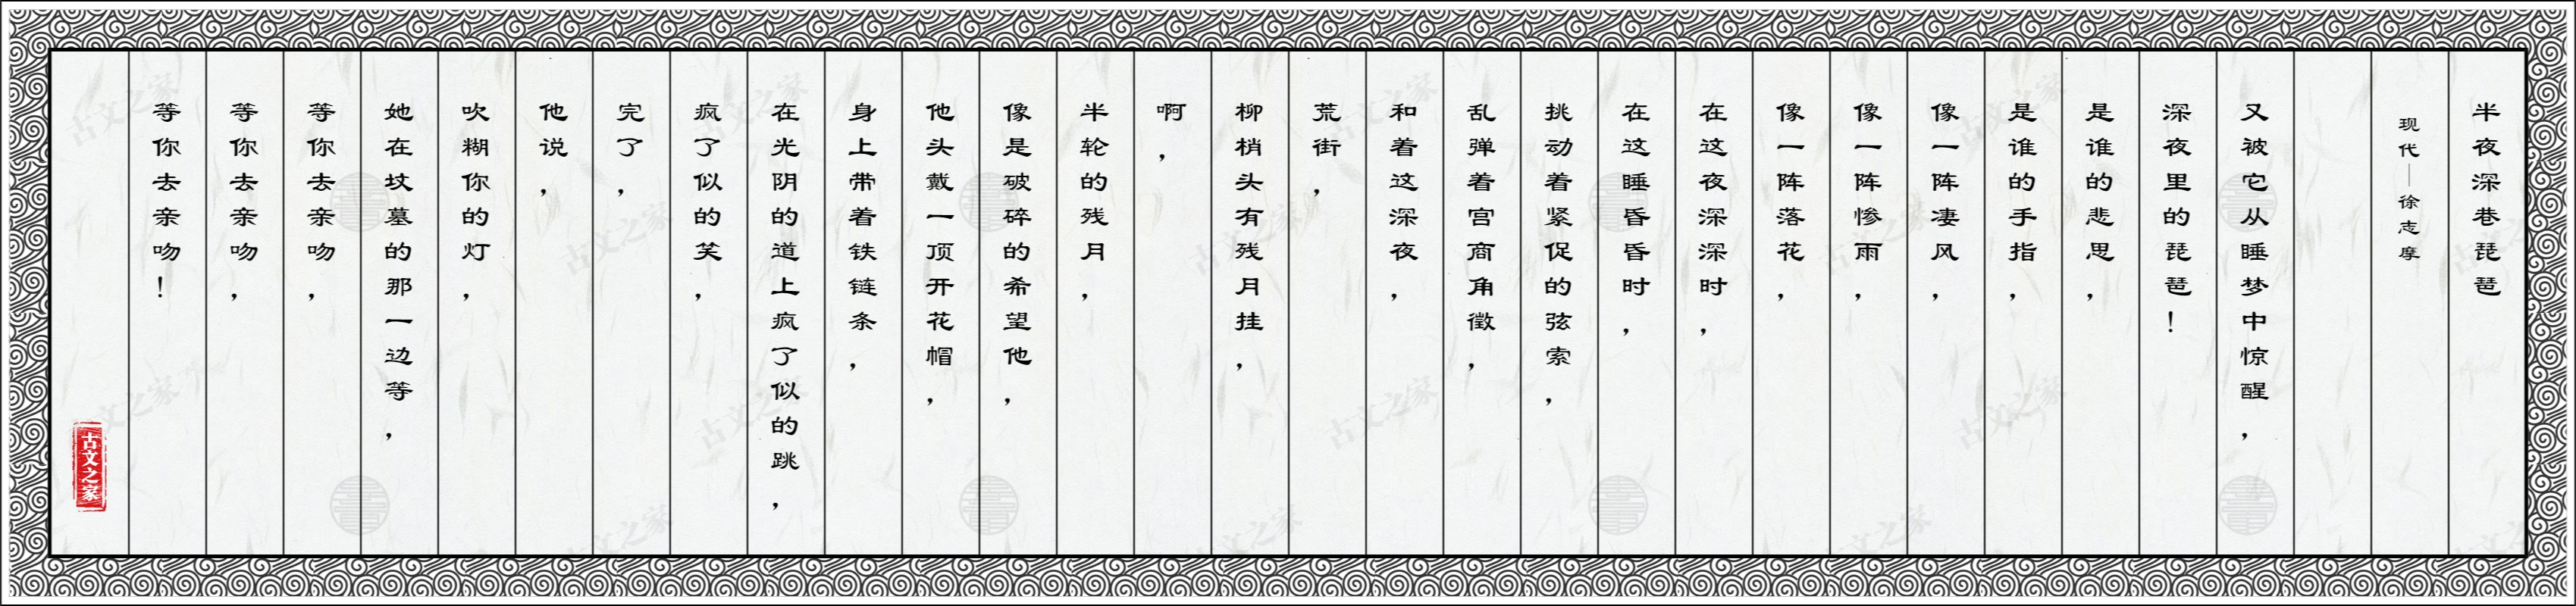 半夜深巷琵琶
现代—徐志摩
又被它从睡梦中惊醒，
深夜里的琵琶！
是谁的悲思，
是谁的手指，
像一阵凄风，
像一阵惨雨，
像一阵落花，
在这夜深深时，
在这睡昏昏时，
挑动着紧促的弦索，
乱弹着宫商角徵，
和着这深夜，
荒街，
柳梢头有残月挂，
啊，
半轮的残月，
像是破碎的希望他，
他头戴一顶开花帽，
身上带着铁链条，
在光阴的道上疯了似的跳，
疯了似的笑，
完了，
他说，
吹糊你的灯，
她在坟墓的那一边等，
等你去亲吻，
等你去亲吻，
等你去亲吻！
古文之家